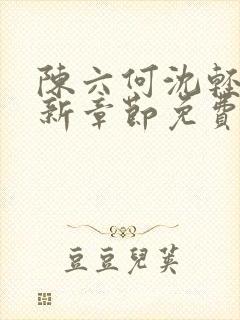 陳六何沈輕
新章節免費
豆豆兒英